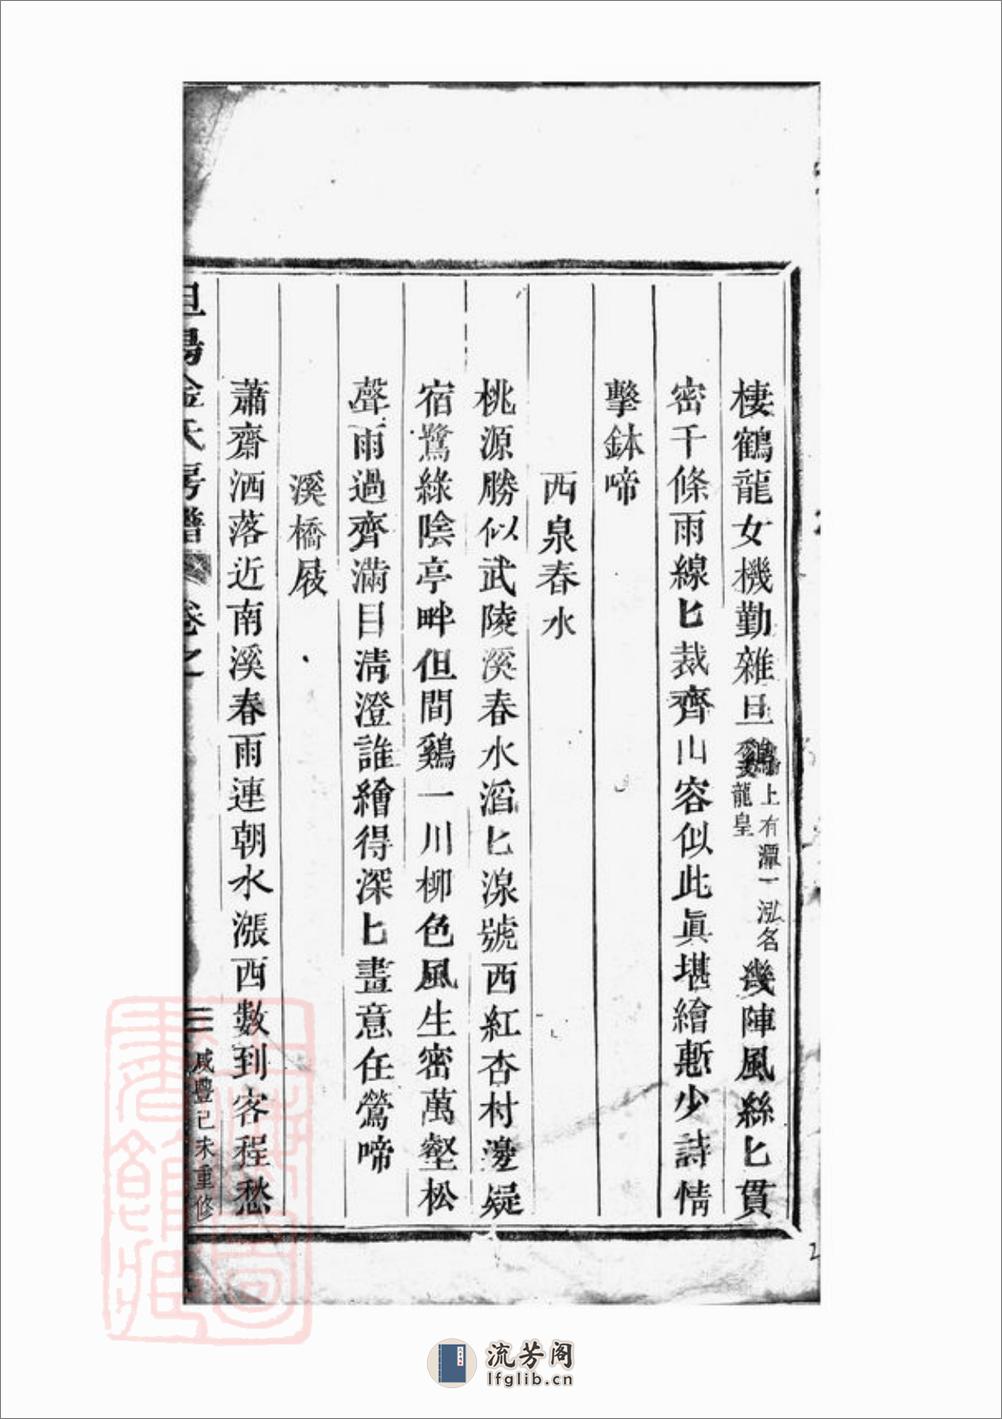 棲鶴龍女機勤雜旦鷄上有潭一泓名龍皇幾陣風絲匕貫
密千條雨線匕裁齊山容似此眞堪繪慙少詩情
擊鉢啼
西泉春水
桃源勝似武陵溪春水滔匕湶號西紅杏村邊疑
宿鷺綠陰亭畔但間鷄一川柳色風生密萬壑松
聲雨過齊滿目淸澄誰繪得深匕畫意任鶯啼
溪橋屐
蕭齋洒落近南溪春雨連朝水漲西數到客程愁
旦陽金氏房譜 卷之
咸豐己未重修
流芳阁
lfglib.cn